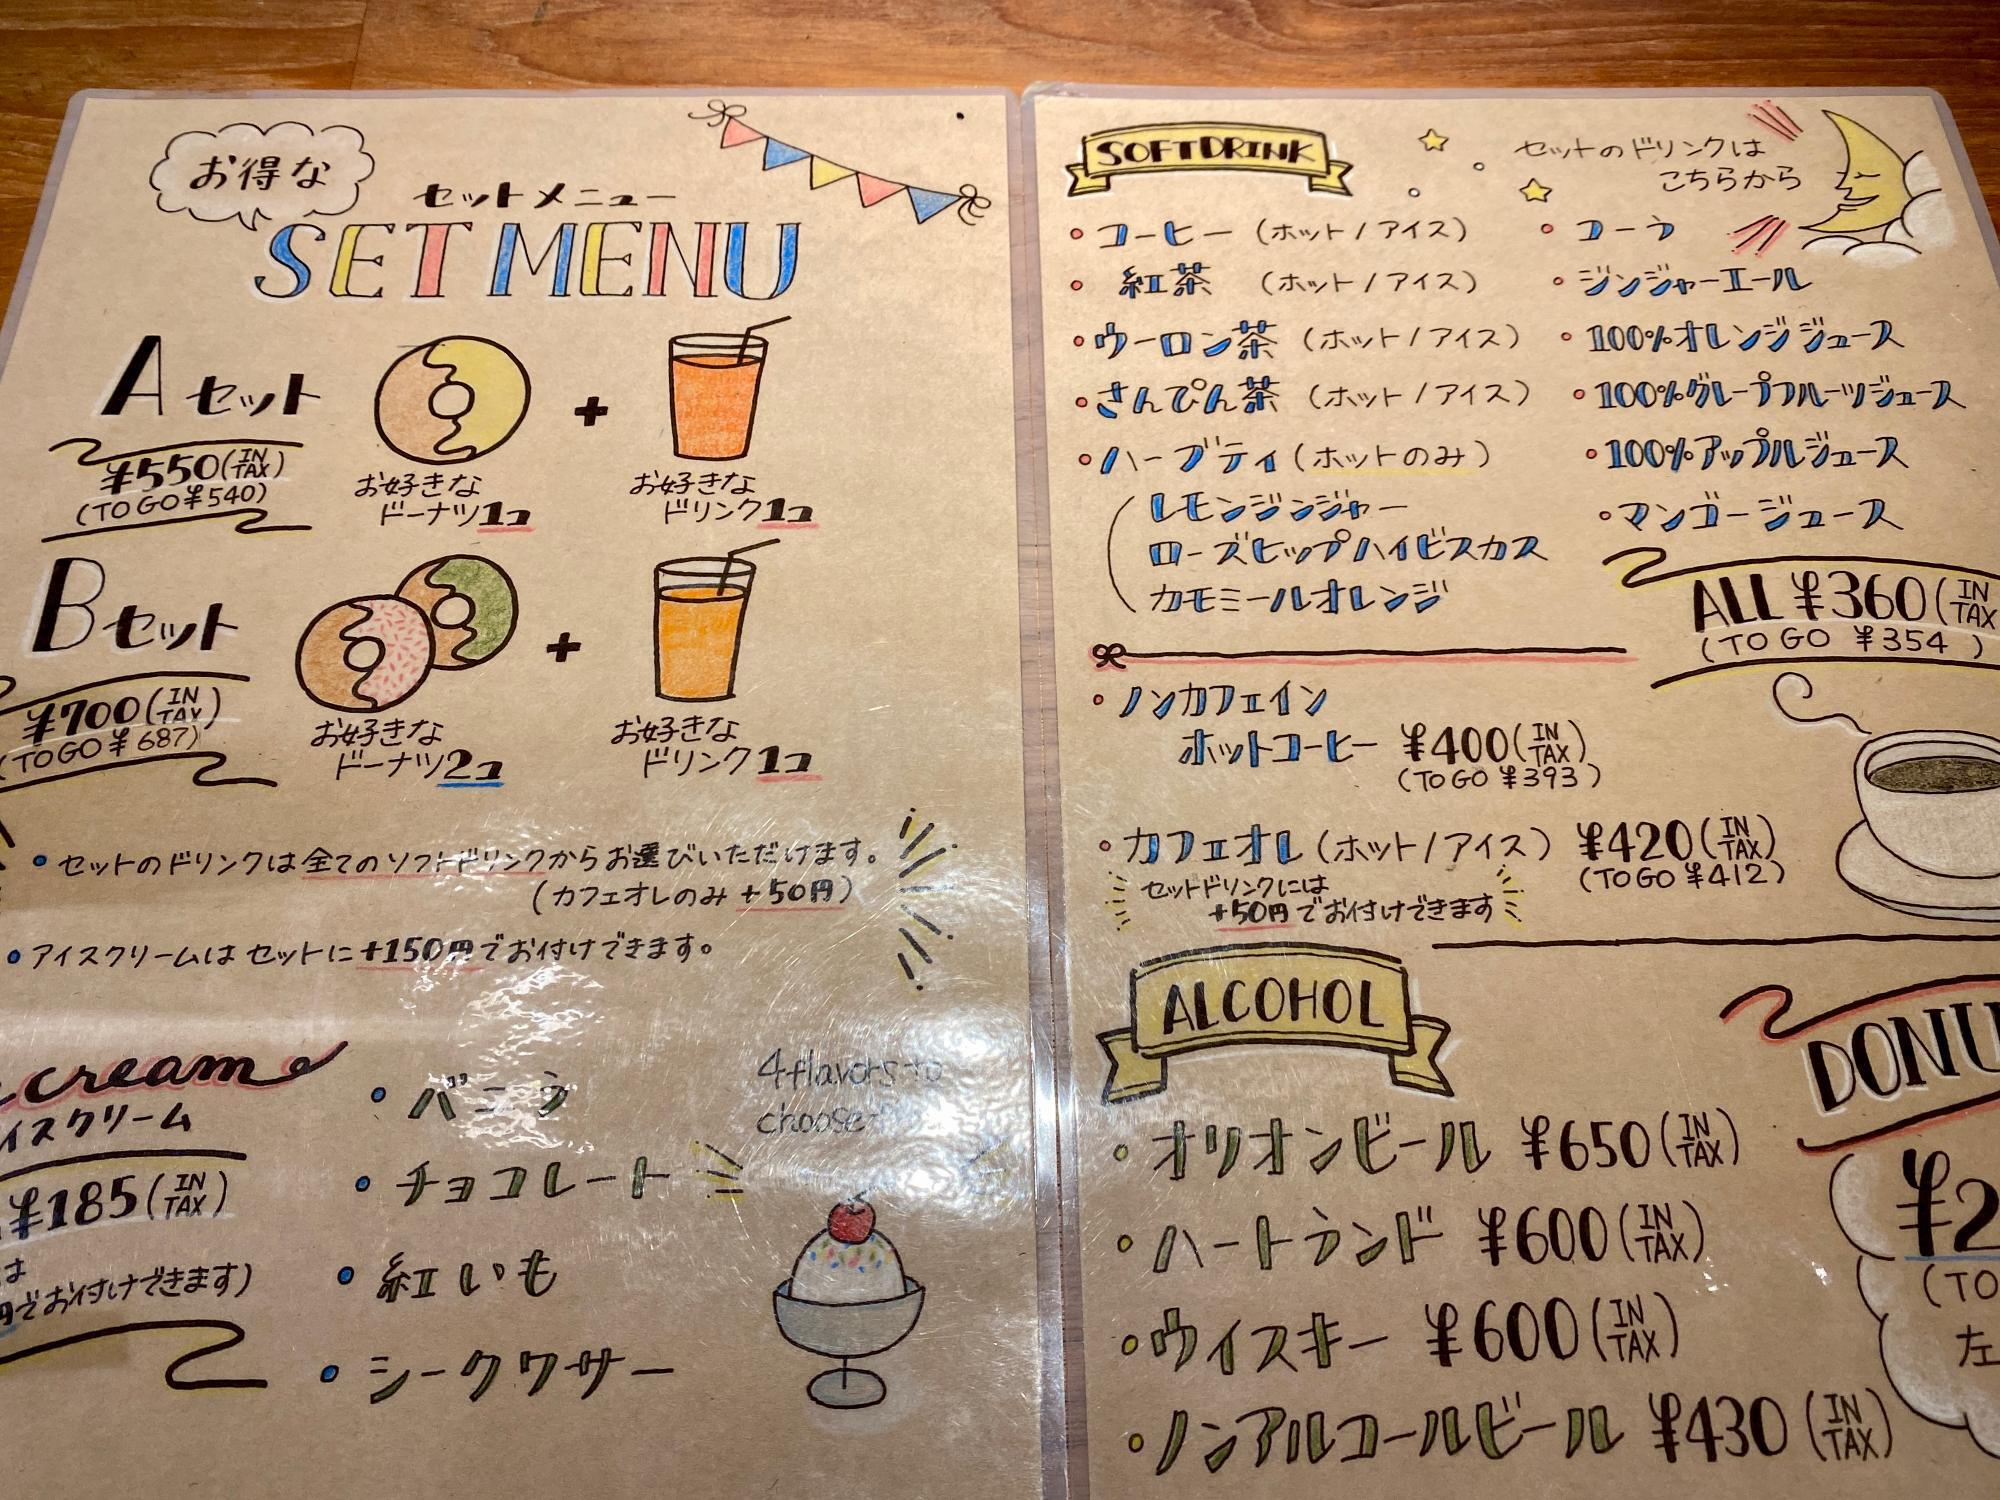 お得な
セットメニュー
SET MENU
Aセット
¥550(IN TAX)
(TO GO ¥540)
お好きな
ドーナツ1コ
+
お好きな
ドリンク1コ
Bセット
¥700(IN TAX)
(TO GO ¥687)
お好きな
ドーナツ2コ
+
お好きな
ドリンク1コ
•セットのドリンクは全てのソフトドリンクからお選びいただけます。
(カフェオレのみ+50円)
•アイスクリームはセットに+150円でお付けできます。
cream
イスクリーム
¥185(IN TAX)
は
円でお付けできます)
•バニラ
•チョコレート
•紅いも
•シークワサー
4 flavors to
choose
SOFT DRINK
セットのドリンクは
こちらから
•コーヒー(ホット/アイス)
•紅茶(ホット/アイス)
•ウーロン茶(ホット/アイス)
•さんぴん茶(ホット/アイス)
•ハーブティ(ホットのみ)
レモンジンジャー
ローズヒップハイビスカス
カモミールオレンジ
•コーラ
•ジンジャーエール
•100%オレンジジュース
•100%グレープフルーツジュース
•100%アップルジュース
•マンゴージュース
ALL ¥360(IN TAX
(TO GO ¥354)
•ノンカフェイン
ホットコーヒー ¥400(IN TAX)
(TO GO ¥393)
•カフェオレ(ホット/アイス) ¥420(IN TAX)
(TO GO ¥412)
セットドリンクには
+50円でお付けできます
ALCOHOL
•オリオンビール ¥650(IN TAX)
•ハートランド ¥600(IN TAX)
•ウイスキー ¥600(IN TAX)
•ノンアルコールビール ¥430(IN TAX)
DONU
¥2
(TO
左